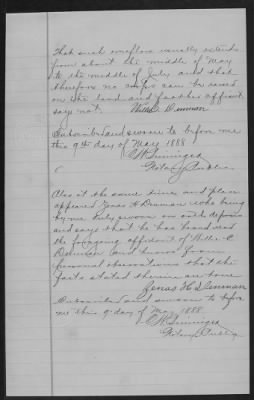 That such overflow usually extends
from about the middle of May
to the middle of July and that
therefore no crops can be raised
on the land and further affiant
say not. Willis C. Denman
Subscribed and sworn to before me
this 9th day of May 1888
Notary Public
Also at the same time and place
appeared Zenas H Denman who being
by me duly sworn on oath deposes
and says that he has heard read
the foregoing affidavit of Willis C
Denman and knows from
personal observations that the
facts stated therein are true
Zenas H. Denman
Subscribed and sworn to before
me this 9 day of May 1888
Notary Public